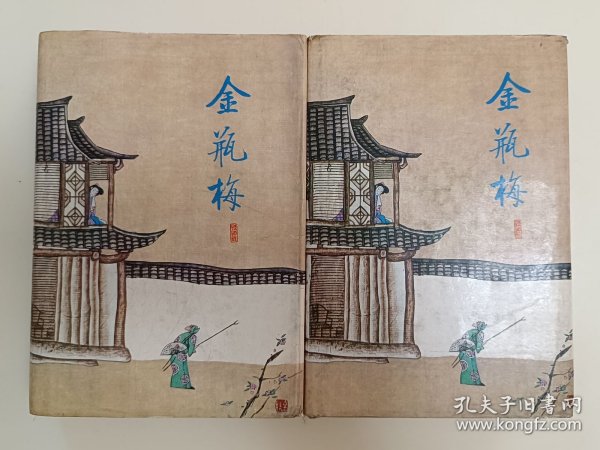 金瓶梅
金瓶梅
孔夫子旧書网
www.kongfz.com